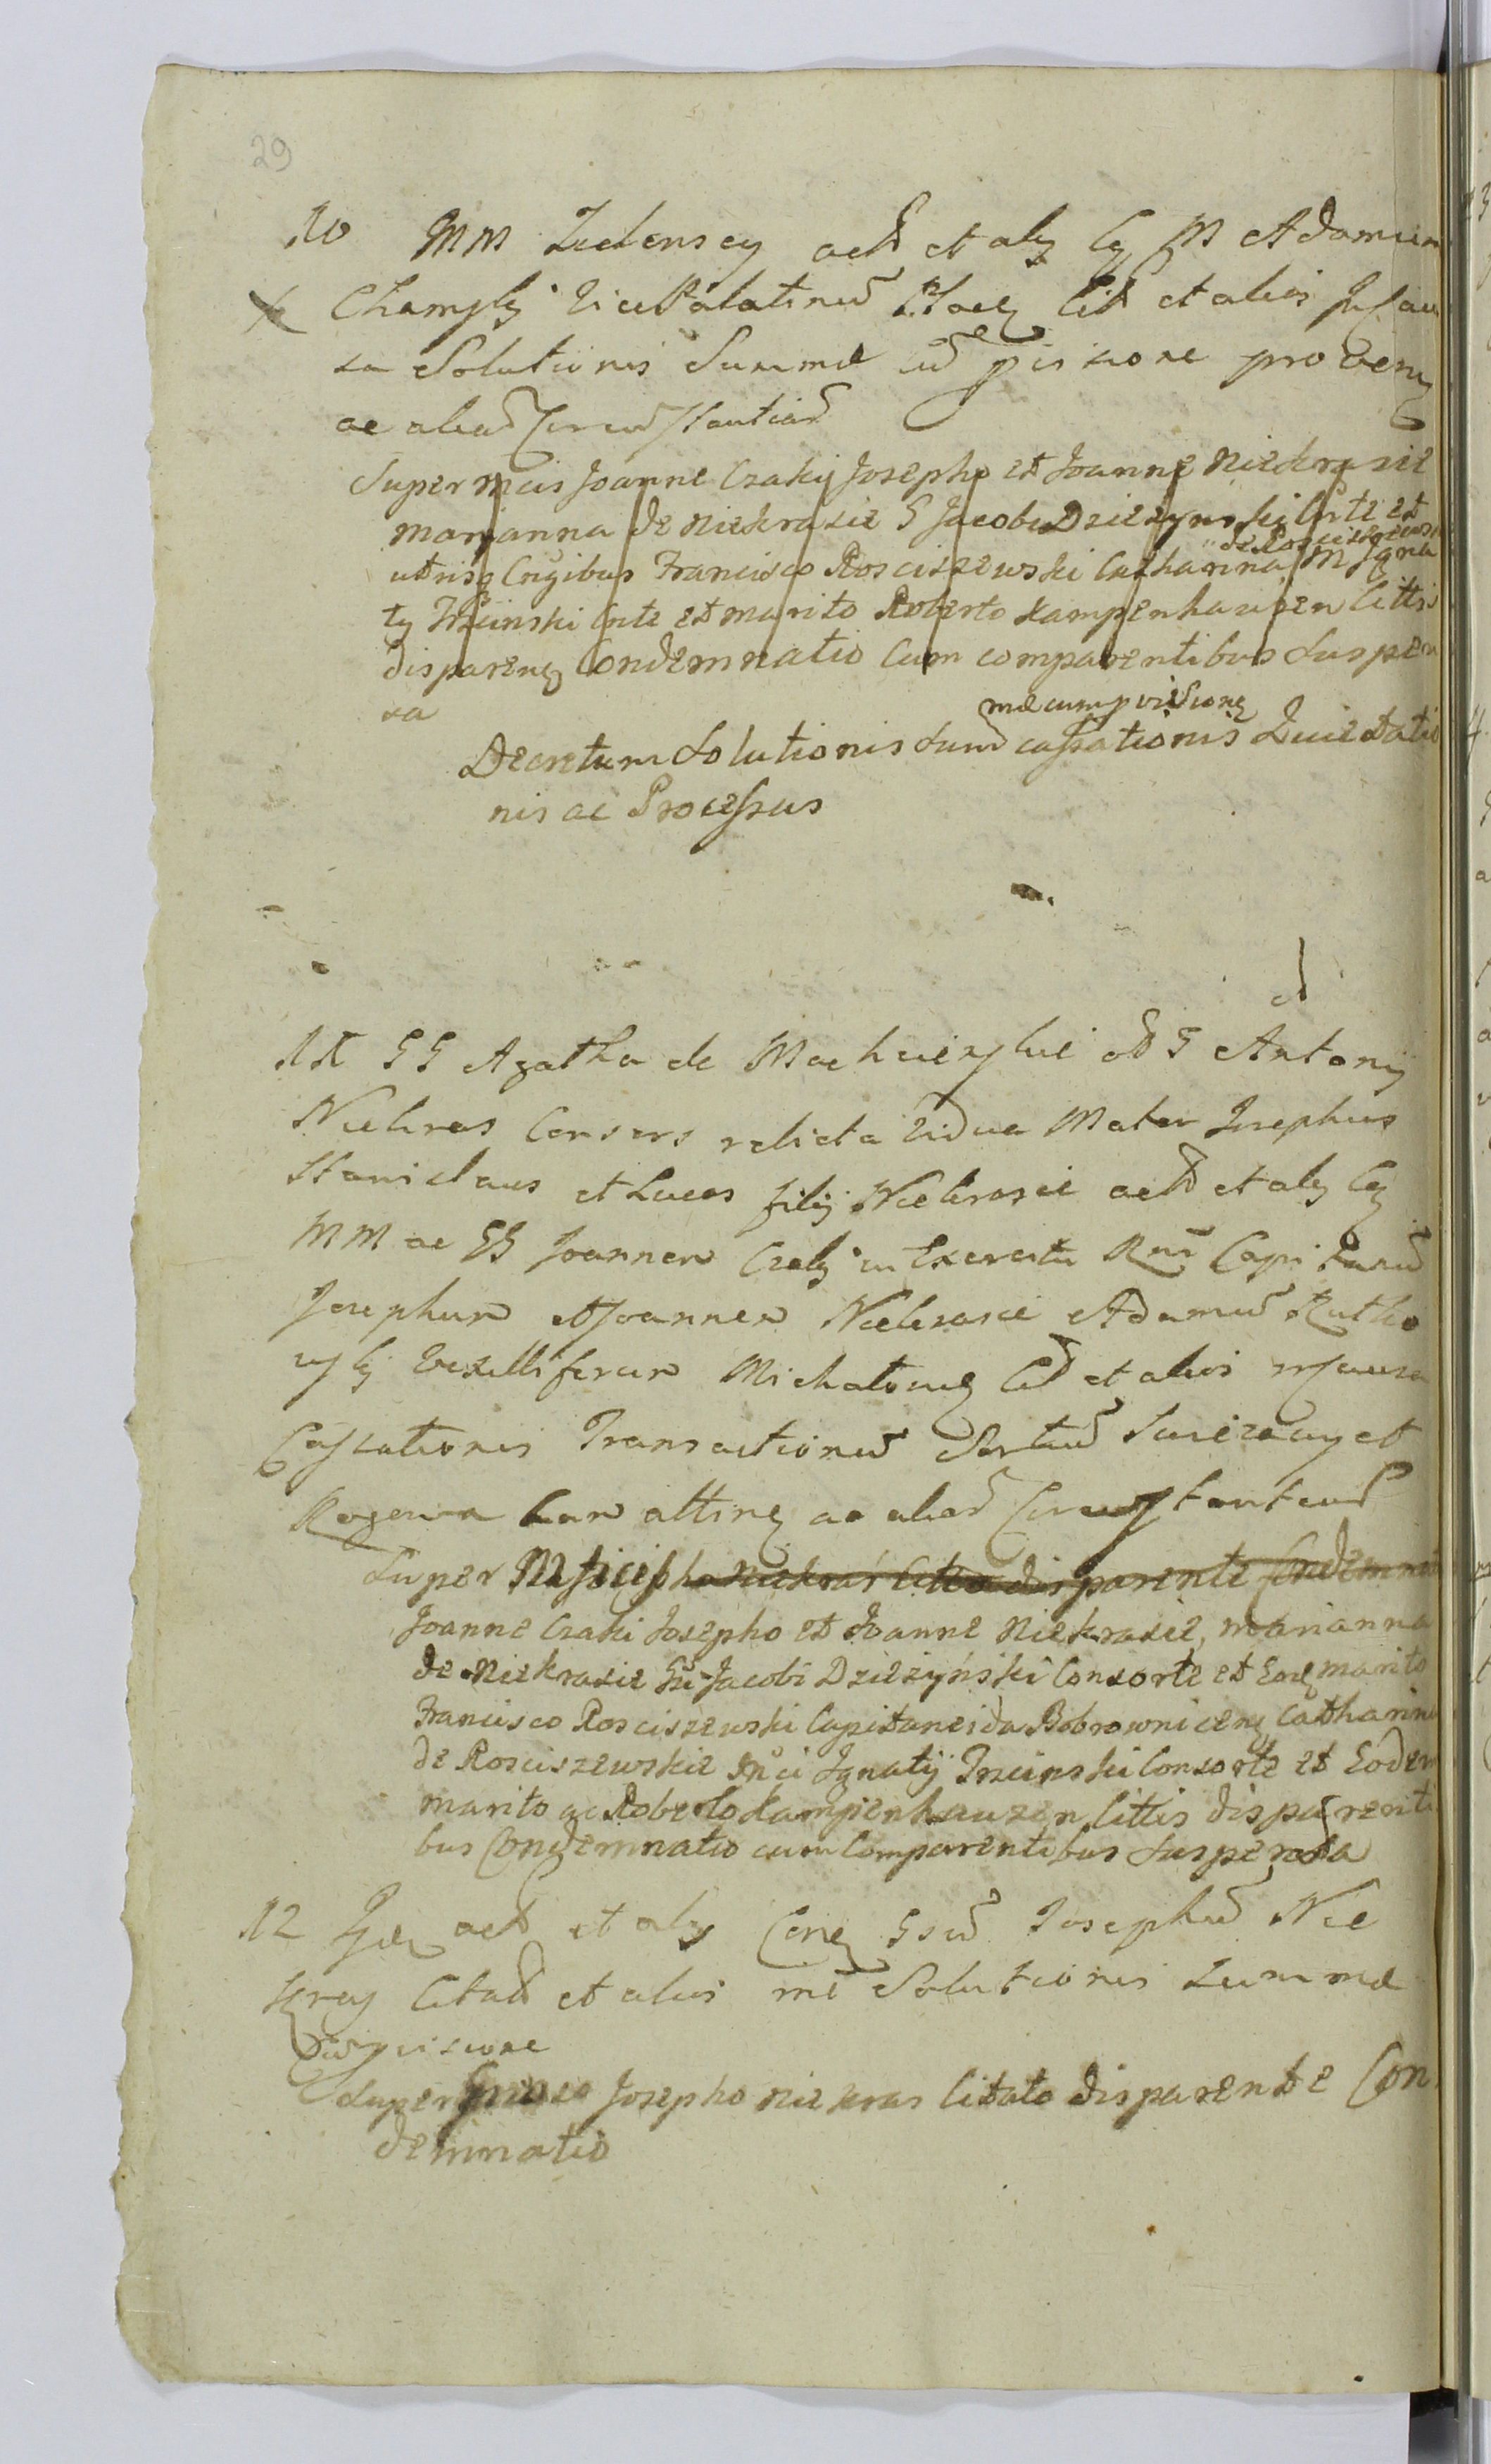 29
10 MM Zielenscy act et alÿ Cÿ M Adamum
Champski VicePalatinū Ploceñ Cit et alios In cau
sa Solutionis Summæ cū pisione proveñ
ac aliarū Circumstantiarū
Super Mcis Joanne Czaki Josepho et Joanne Niekrasie
Marianna de Niekrasie G Jacobi Dzierzynski Crte et
utrisq Cngibus Francisco Rosciszewski Catharina de Rosciszewskie M Igna
tÿ Trzcinski Crte et marito Roberto Kampenhauzen Cittis
disparenñ Condemnatio Cum comparentibus Suspen
sa
Decretum Solutionis Sum̄mæ cum pvisione cassationis Quietatio
nis ac Processus
11 GG Agatha de Machcizskie G Antonÿ
Niekras Consors relicta Vidua Mater Josephus
Stanislaus et Lucas filÿ Niekrasie act et alÿ Cÿ
MM ac GG Joannem Czaki in Exercitu Capitaneū
Josephum et Joannem Niekrasie Adamū Rutko
wski Vexilliferum Michalovieñ Cit et alios in causa
Cassationis Transactionū Sortiū et
attineñ ac aliarū Circumstantiarū
Super M Josepho Niekras Citto disparente Condemnatio
Joanne Czaki Josepho et Joanne Niekrasie, Marianna
de Niekrasie Gsi Jacobi Dzierzyński Consorte et Eodē marito
Francisco Rosciszewski Capitaneida Bobrowniceñ Catharina
de Rosciszewskie Mci Ignatÿ Trzcinski Consorte et Eodem
marito ac Roberto Kampenhauzen Cittis disparenti
bus Condemnatio cum Comparentibus Suspensa
12 Iÿdem act et alÿ Coneñ Gsū Josephū Nie
kras Citat et alios rne Solutionis Summæ
Cū pisione
Super Gnoso Josepho Niekras Citato disparente Con
demnatio